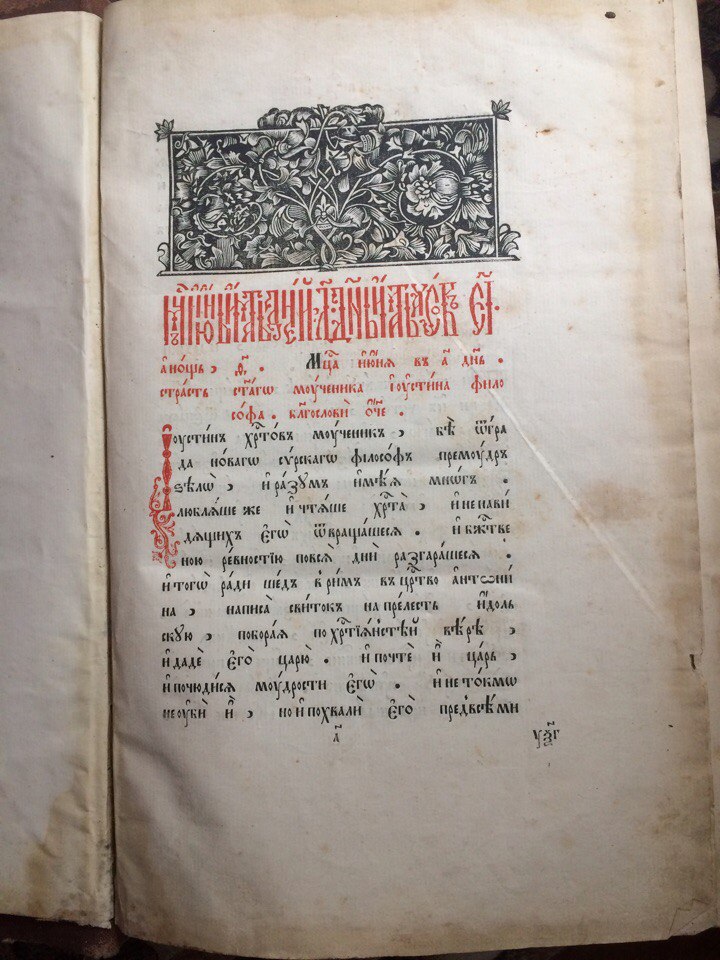 Мцⷭ҇ъ їю́нїй и҆́мать дні́й л҃. а҆ дн҃ь и҆́мать часѡ́въ є҃і.
а҆ но́щь, ѳ҃. Мцⷭ҇а і҆ю́нѧ въ а҃ дн҃ь.
стра́сть ст҃а́гѡ моу́ченика і҆оусті́на фило
со́фа. бл҃гословѝ ѻ҆́ч҃е.
І҆оусти́нъ хрⷭ҇то́въ моу́ченикъ, бѣ̀ ѿ гра
да но́вагѡ сѵ́рскагѡ фїло́софъ премоу́дръ
ѕѣлѡ̀, и҆ ра́зумъ и҆мѣ́ѧ мно́гъ.
люблѧ́ше же и҆ чтѧ́ше хрⷭ҇та̀, и҆ ненави
дѧ́щихъ є҆гѡ̀ ѿвраща́шесѧ. и҆ бжⷭ҇тве
ною ре́вностїю повсѧ̀ дни̑ разгара́шесѧ.
и҆ тогѡ̀ ра́ди ше́дъ в ри́мъ въ црⷭ҇тво а҆нтѡни́
на, написа̀ сви́токъ на пре́лесть и҆́доль
скую, побора́ѧ по хрⷭ҇тїѧ́нстѣй вѣ́рѣ,
и҆ дадѐ є҆го̀ царю̀. и҆ почтѐ и҆̀ ца́рь,
и҆ почюди́сѧ моу́дрости є҆гѡ̀. и҆ не то́кмѡ
не оу҆бѝ и҆̀, но и҆ похвалѝ є҆го̀ предвсѣ́ми
а҃